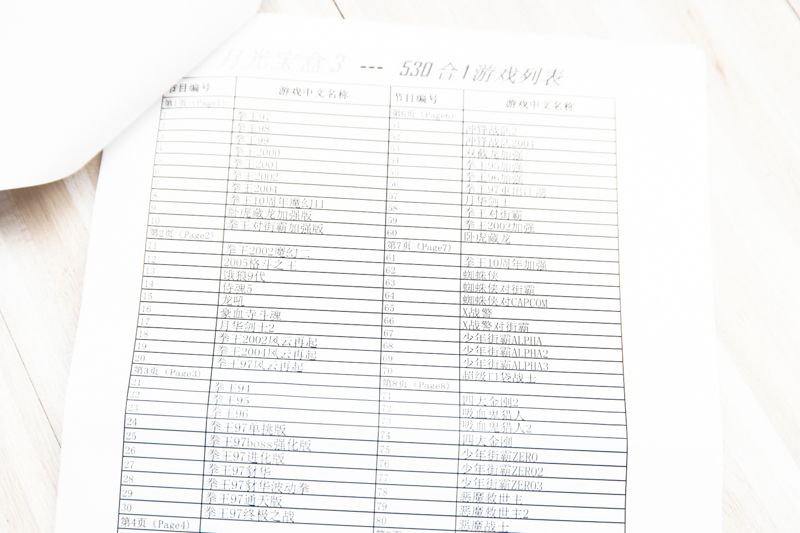 月光宝盒3 --- 530合1游戏列表
节目编号 游戏中文名称 节目编号 游戏中文名称
第1页（Page1） 第6页（Page6）
拳王97 冲锋战队2
拳王98 冲锋战队2004
拳王99 双截龙加强
拳王2000 拳王95加强
拳王2001 拳王96加强
拳王2002 拳王97重出江湖
拳王2004 57 月华剑士
8 拳王10周年魔幻II 58 拳王对街霸
9 卧虎藏龙加强版 59 拳王2002加强
10 拳王对街霸加强版 60 卧虎藏龙
第2页（Page2） 第7页（Page7）
11 拳王2002魔幻二 61 拳王10周年加强
12 2005格斗之王 62 蜘蛛侠
13 饿狼9代 63 蜘蛛侠对街霸
14 侍魂5 64 蜘蛛侠对CAPCOM
15 龙吼 65 X战警
16 豪血寺斗魂 66 X战警对街霸
17 月华剑士2 67 少年街霸ALPHA
18 拳王2002风云再起 68 少年街霸ALPHA2
19 拳王2004风云再起 69 少年街霸ALPHA3
20 拳王97风云再起 70 超级口袋战士
第3页（Page3） 第8页（Page8）
21 拳王94 71 四大金刚2
22 拳王95 72 吸血鬼猎人
23 拳王96 73 吸血鬼猎人2
24 拳王97单挑版 74 四大金刚
25 拳王97boss强化版 75 少年街霸ZERO
26 拳王97进化版 76 少年街霸ZERO2
27 拳王97豺华 77 少年街霸ZERO3
28 拳王97豺华波动拳 78 恶魔救世主
29 拳王97通天版 79 恶魔救世主2
30 拳王97终极之战 80 恶魔战士
第4页（Page4）